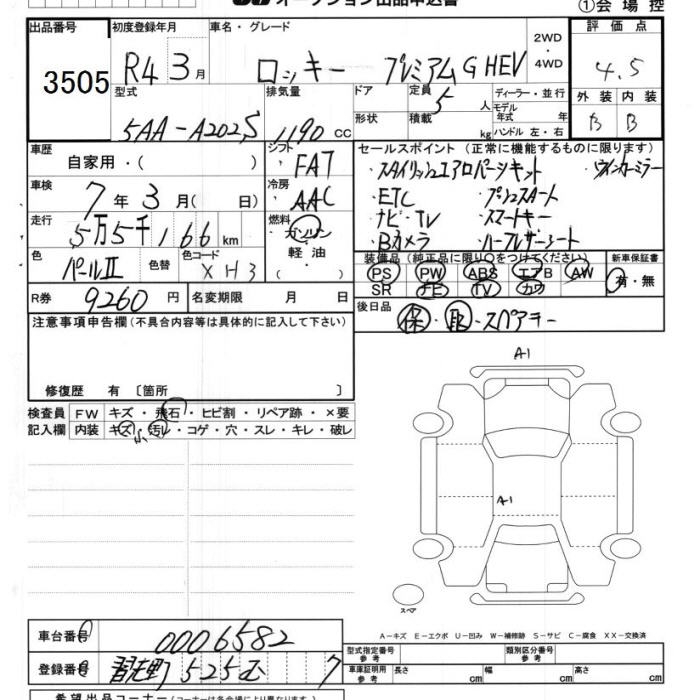 オークション出品申込書
①会場控
出品番号 3505
初度登録年月 R4 3月
車名・グレード ロッキー プレミアムG HEV
2WD・4WD
評価点 4.5
型式 5AA-A202S
排気量 1190 cc
ドア
形状
定員 5 人
積載 kg
ディーラー・並行
モデル年式 年
ハンドル 左・右
外装 B
内装 B
車歴 自家用・( )
シフト FAT
セールスポイント (正常に機能するものに限ります)
・スタイリッシュエアロパーツキット ・ウインカーミラー
・ETC ・プッシュスタート
・ナビ・TV ・スマートキー
・Bカメラ ・ハーフレザーシート
車検 7年3月( 日)
冷房 AAC
走行 5万5千166 km
燃料 ガソリン
軽油
・( )
色 パールII
色替
色コード XH3
装備品 (純正品に限り○をつけてください)
PS PW ABS エアB AW
SR ナビ TV カワ
新車保証書 有・無
R券 9260 円
名変期限 月 日
後日品 保・取・スペアキー
注意事項申告欄 (不具合内容等は具体的に記入して下さい)
修復歴 有 〔箇所 〕
検査員記入欄
FW キズ・飛石・ヒビ割・リペア跡・×要
内装 キズ・汚レ・コゲ・穴・スレ・キレ・破レ
小
A1
A1
スペア
A-キズ E-エクボ U-凹み W-補修跡 S-サビ C-腐食 XX-交換済
車台番号 0006582
型式指定番号 参考
類別区分番号 参考
登録番号 習志野 525 む 7
車庫証明用 参考 長さ cm 幅 cm 高さ cm
希望出品コーナー (コーナーは各会場により異なります)